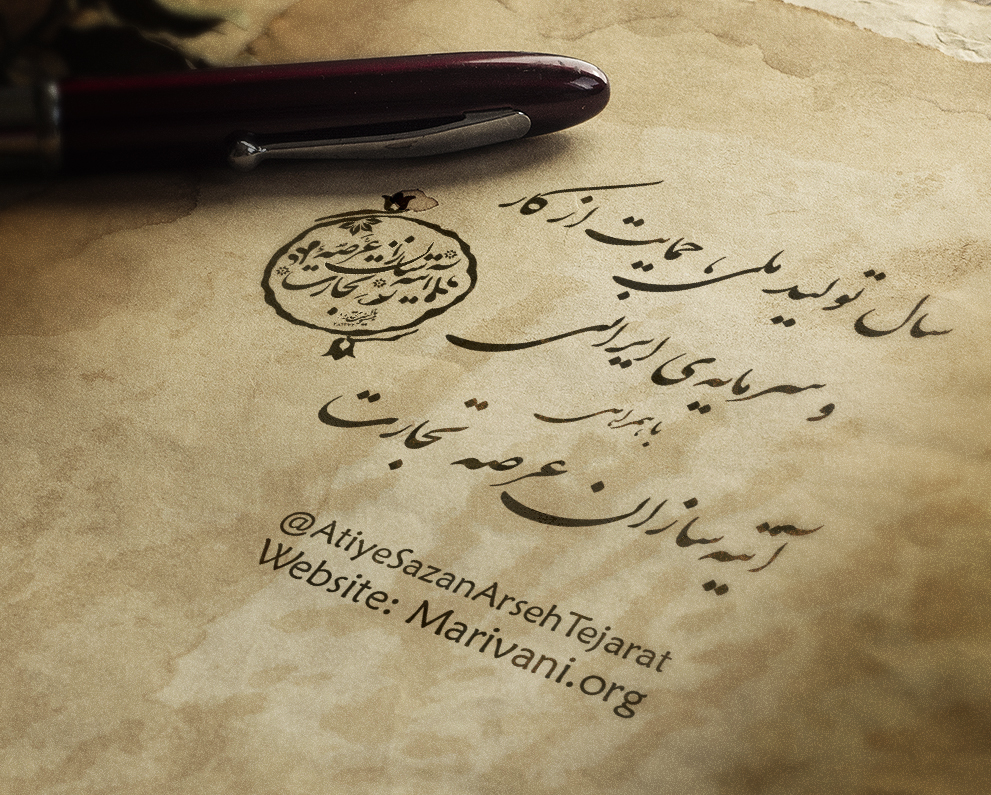 سال تولید ملی، حمایت از کار
و سرمایه‌ی ایرانی
با همراهی
آتیه سازان عرصه تجارت
آتیه سازان عرصه
نو تجارت
@AtiyeSazanArsehTejarat
Website: Marivani.org